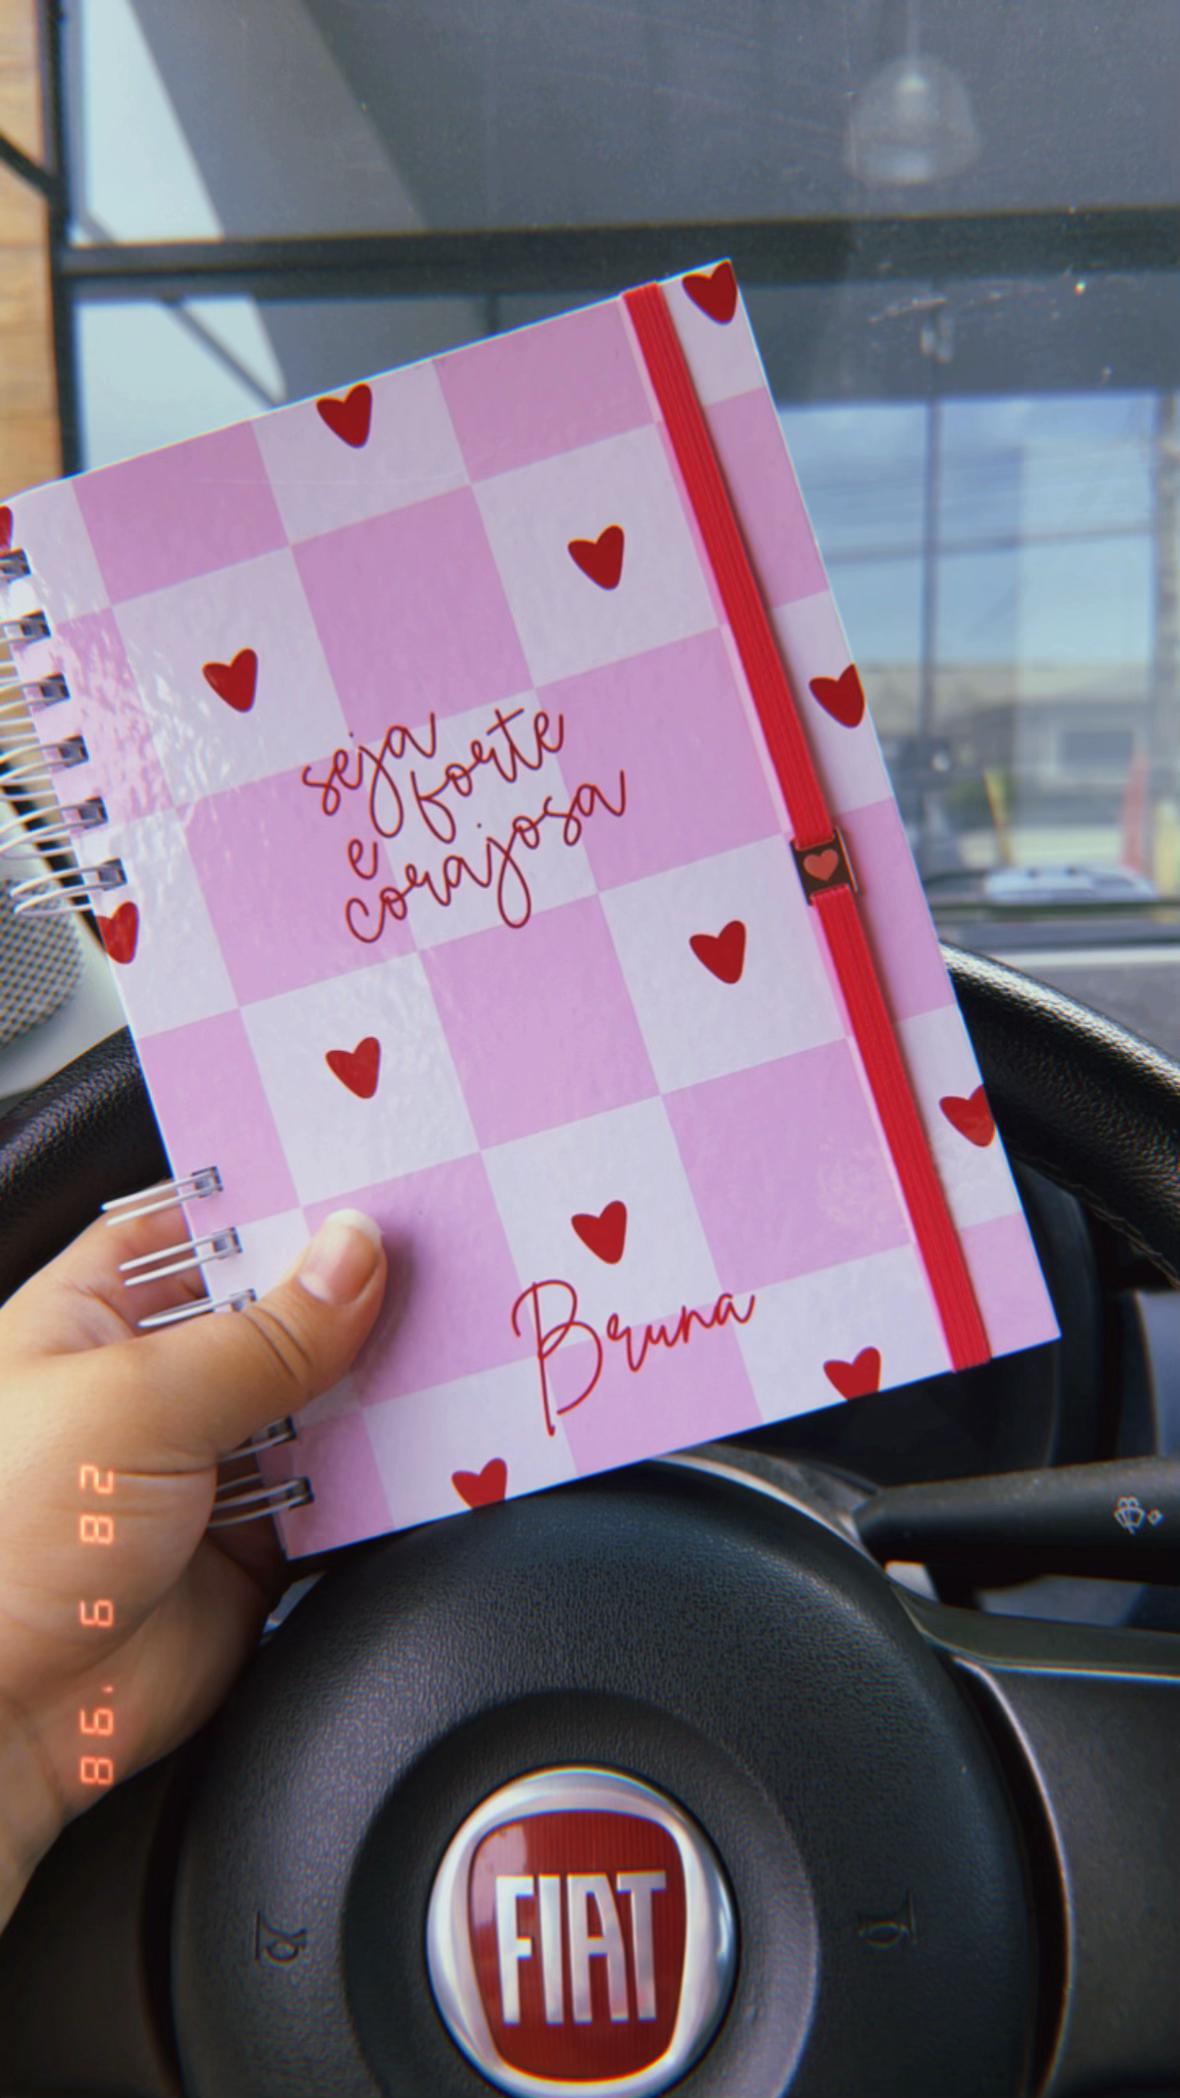 seja
forte
e
corajosa
Bruna
'98 6 28
FIAT